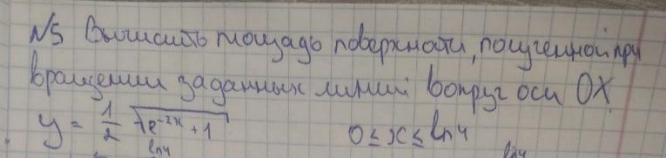 N5 Вычислить площадь поверхности, полученной при
вращении заданных линий вокруг оси OX
y = 1/2 √(e^(-2x) + 1)  0 ≤ x ≤ ln4
ln4 ln4